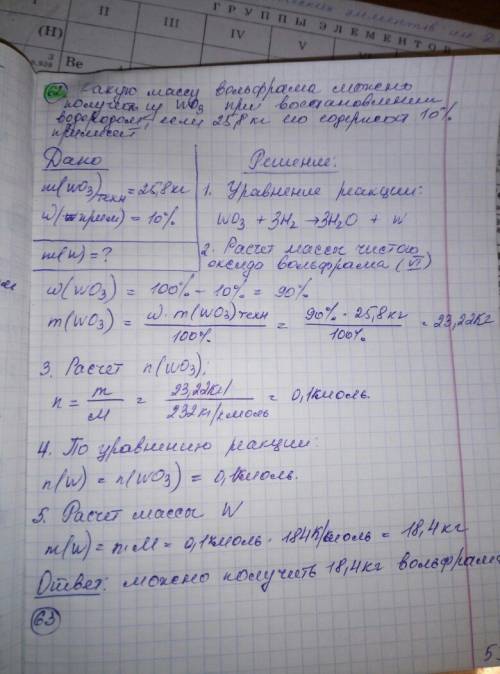 ГРУППЫ ЭЛЕМЕНТОВ
II III IV V VI
(H)
3
Be
62 Какую массу вольфрама можно
получить из WO3 при восстановлении
водородом, если 25,8 кг его содержат 10%
примесей
Дано
Решение:
m(WO3)техн = 25,8 кг
1. Уравнение реакции:
W(прим) = 10%
WO3 + 3H2 → 3H2O + W
m(W) = ?
2. Расчет массы чистого
оксида вольфрама (VI)
W(WO3) = 100% - 10% = 90%
m(WO3) = W · m(WO3)техн / 100% = 90% · 25,8 кг / 100% = 23,22 кг
3. Расчет n(WO3).
n = m / M = 23,22 кг / 232 кг/кмоль = 0,1 кмоль.
4. По уравнению реакции:
n(W) = n(WO3) = 0,1 кмоль.
5. Расчет массы W
m(W) = n · M = 0,1 кмоль · 184 кг/кмоль = 18,4 кг
Ответ: можно получить 18,4 кг вольфрама
63